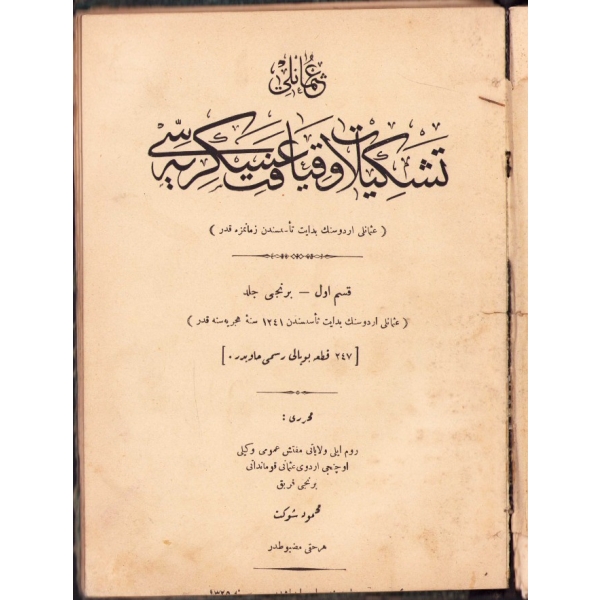 عثمانلی
تشکیلات و قیافت عسکریه سی
( عثمانلی اردوسنك بدایت تأسسندن زمانمزه قدر )
قسم اول — برنجی جلد
( عثمانلی اردوسنك بدایت تأسسندن ١٢٤١ سنۀ هجریه سنه قدر )
[ ٢٤٧ قطعه بویالی رسمی حاویدر . ]
محرری :
روم ایلی ولایاتی مفتش عمومی وکیلی
اوچنجی اردوی عثمانی قوماندانی
برنجی فریق
محمود شوکت
هر حقی مضبوطدر
١٣٢٥